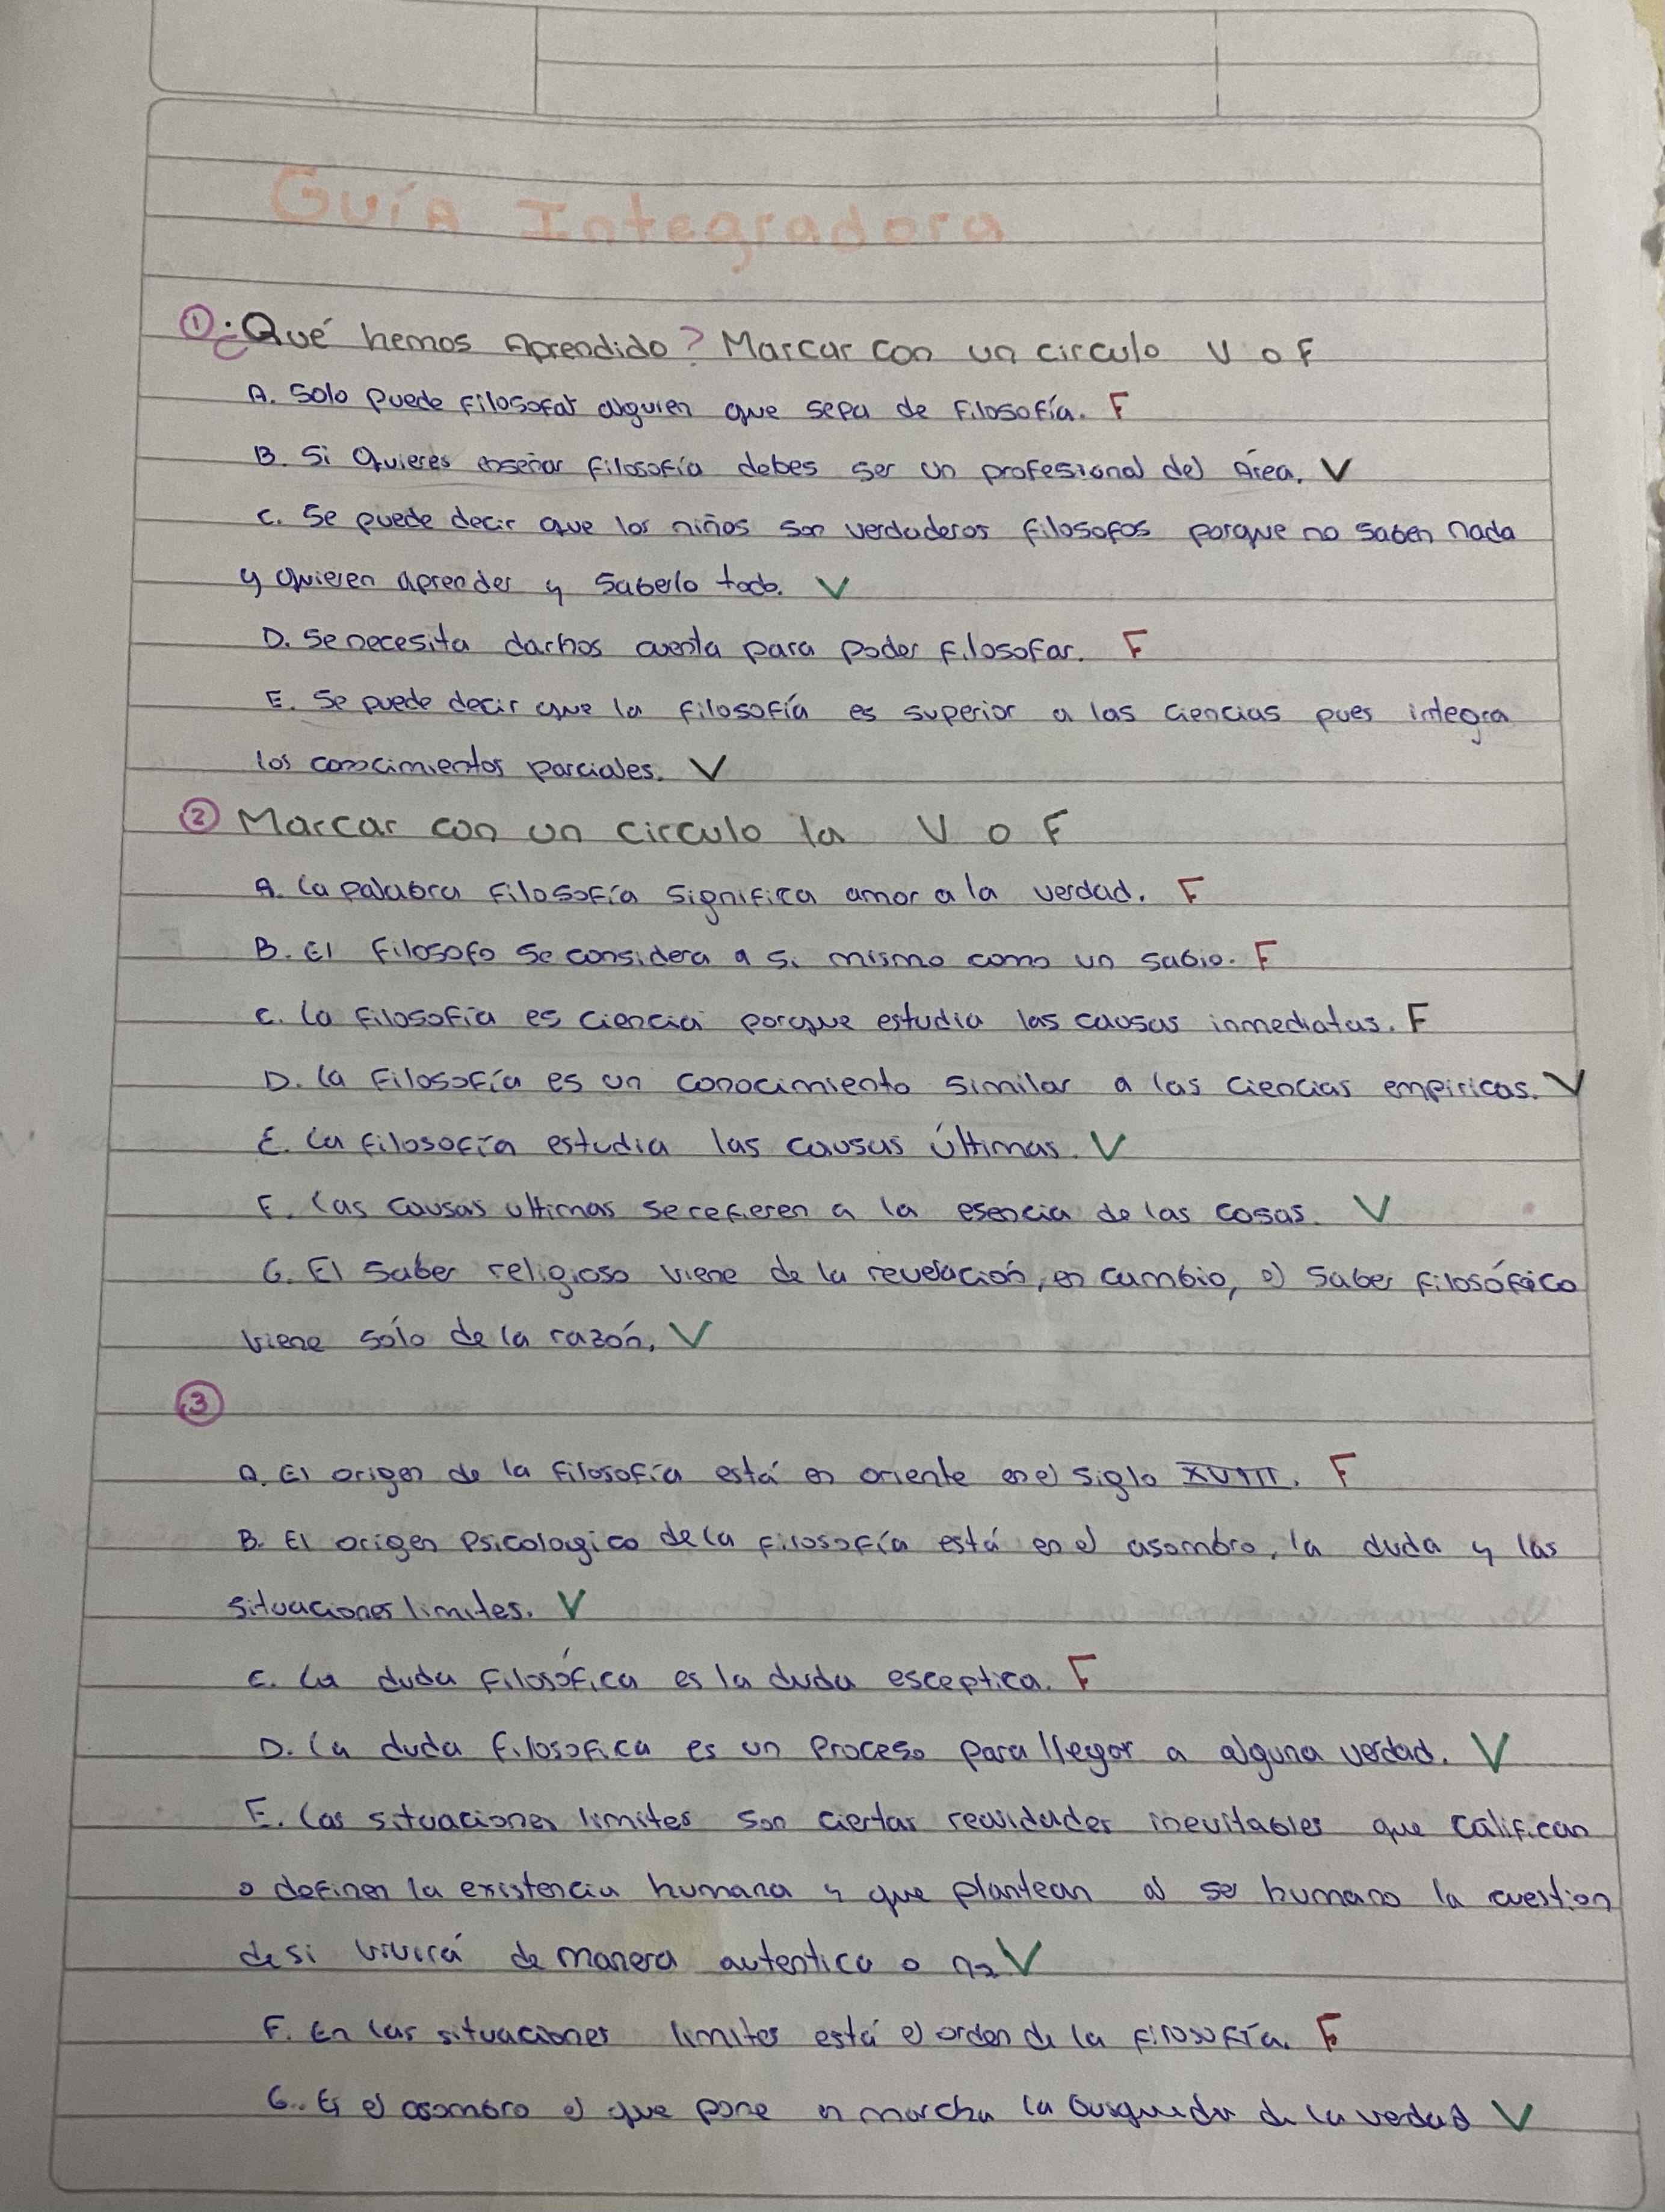 Guía Integradora
① ¿Qué hemos Aprendido? Marcar con un circulo V o F
A. Solo puede filosofar alguien que sepa de filosofía. F
B. Si Quieres enseñar filosofía debes ser un profesional del Área. V
C. Se puede decir que los niños son verdaderos filosofos porque no saben nada
y quieren aprender y saberlo todo. V
D. Se necesita darnos cuenta para poder filosofar. F
E. Se puede decir que la filosofía es superior a las ciencias pues integra
los conocimientos parciales. V
② Marcar con un circulo la V o F
A. La palabra filosofía significa amor a la verdad. F
B. El filosofo se considera a si mismo como un sabio. F
C. La filosofía es ciencia porque estudia las causas inmediatas. F
D. La filosofía es un conocimiento similar a las ciencias empiricas. V
E. La filosofía estudia las causas últimas. V
F. Las causas ultimas se refieren a la esencia de las cosas. V
G. El saber religioso viene de la revelación, en cambio, el saber filosófico
viene sólo de la razón. V
③
A. El origen de la filosofía está en oriente en el siglo XVIII. F
B. El origen Psicologico de la filosofía está en el asombro, la duda y las
situaciones limites. V
C. La duda filosófica es la duda esceptica. F
D. La duda filosofica es un Proceso para llegar a alguna verdad. V
E. Las situaciones limites son ciertas realidades inevitables que califican
o definen la existencia humana y que plantean al ser humano la cuestion
de si vivirá de manera autentica o no V
F. En las situaciones limites está el orden de la filosofía. F
G. Es el asombro el que pone en marcha la busqueda de la verdad V